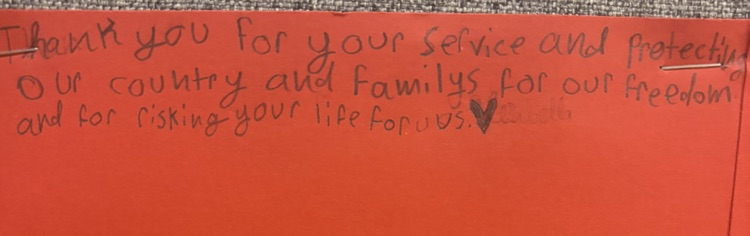 Thank you for your service and protecting
our country and familys for our freedom
and for risking your life for us.